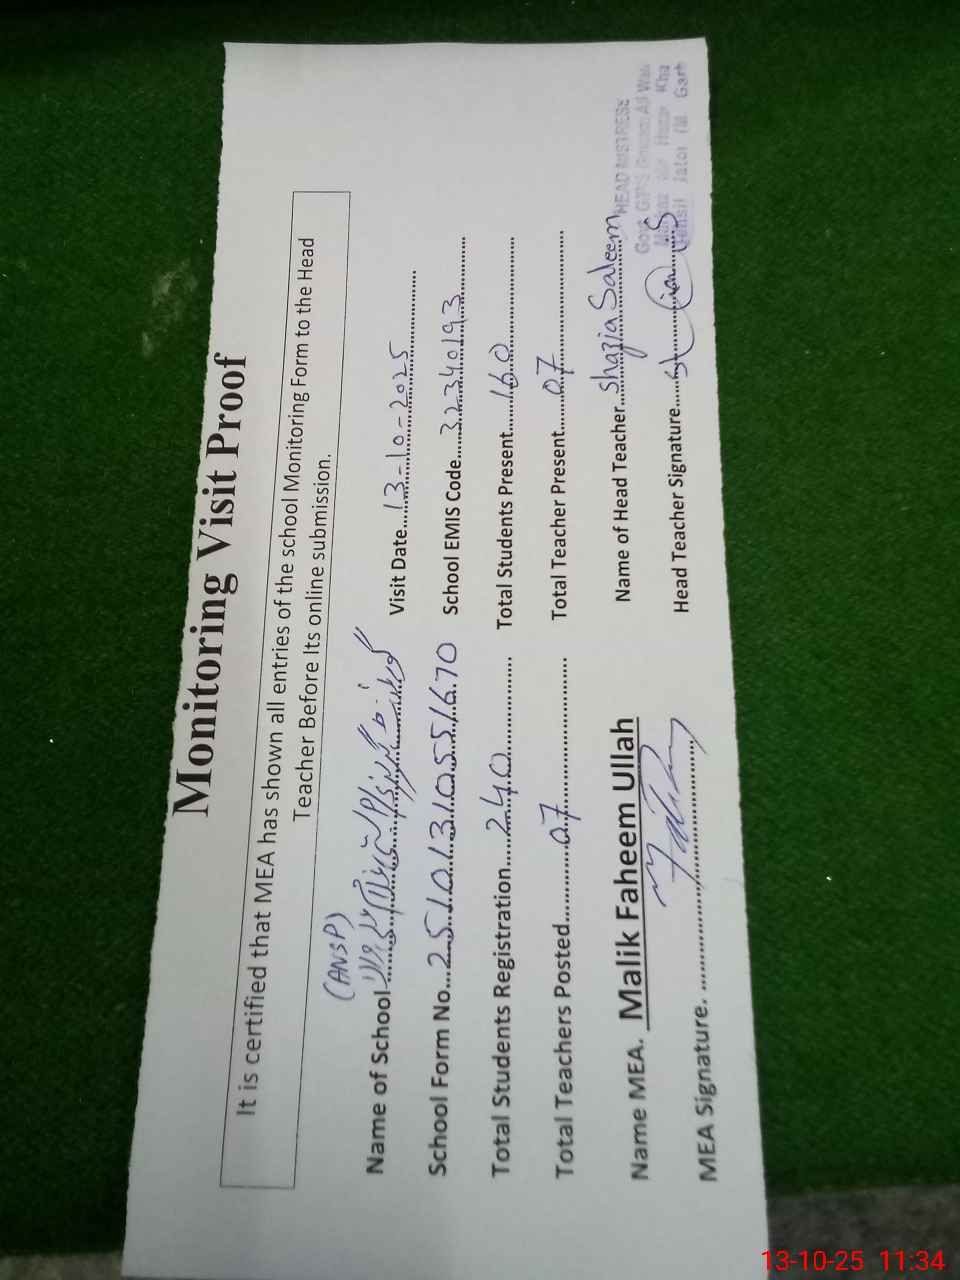 Monitoring Visit Proof
It is certified that MEA has shown all entries of the school Monitoring Form to the Head
Teacher Before Its online submission.
(ANSP)
Name of School
Visit Date 13-10-2025
School Form No 25101310551670 School EMIS Code 32340193
Total Students Registration 240 Total Students Present 160
Total Teachers Posted 07 Total Teacher Present 07
Name MEA. Malik Faheem Ullah Name of Head Teacher Shazia Saleem
MEA Signature. Head Teacher Signature
HEAD MISTRESS
Govt
Jatoi
13-10-25 11:34